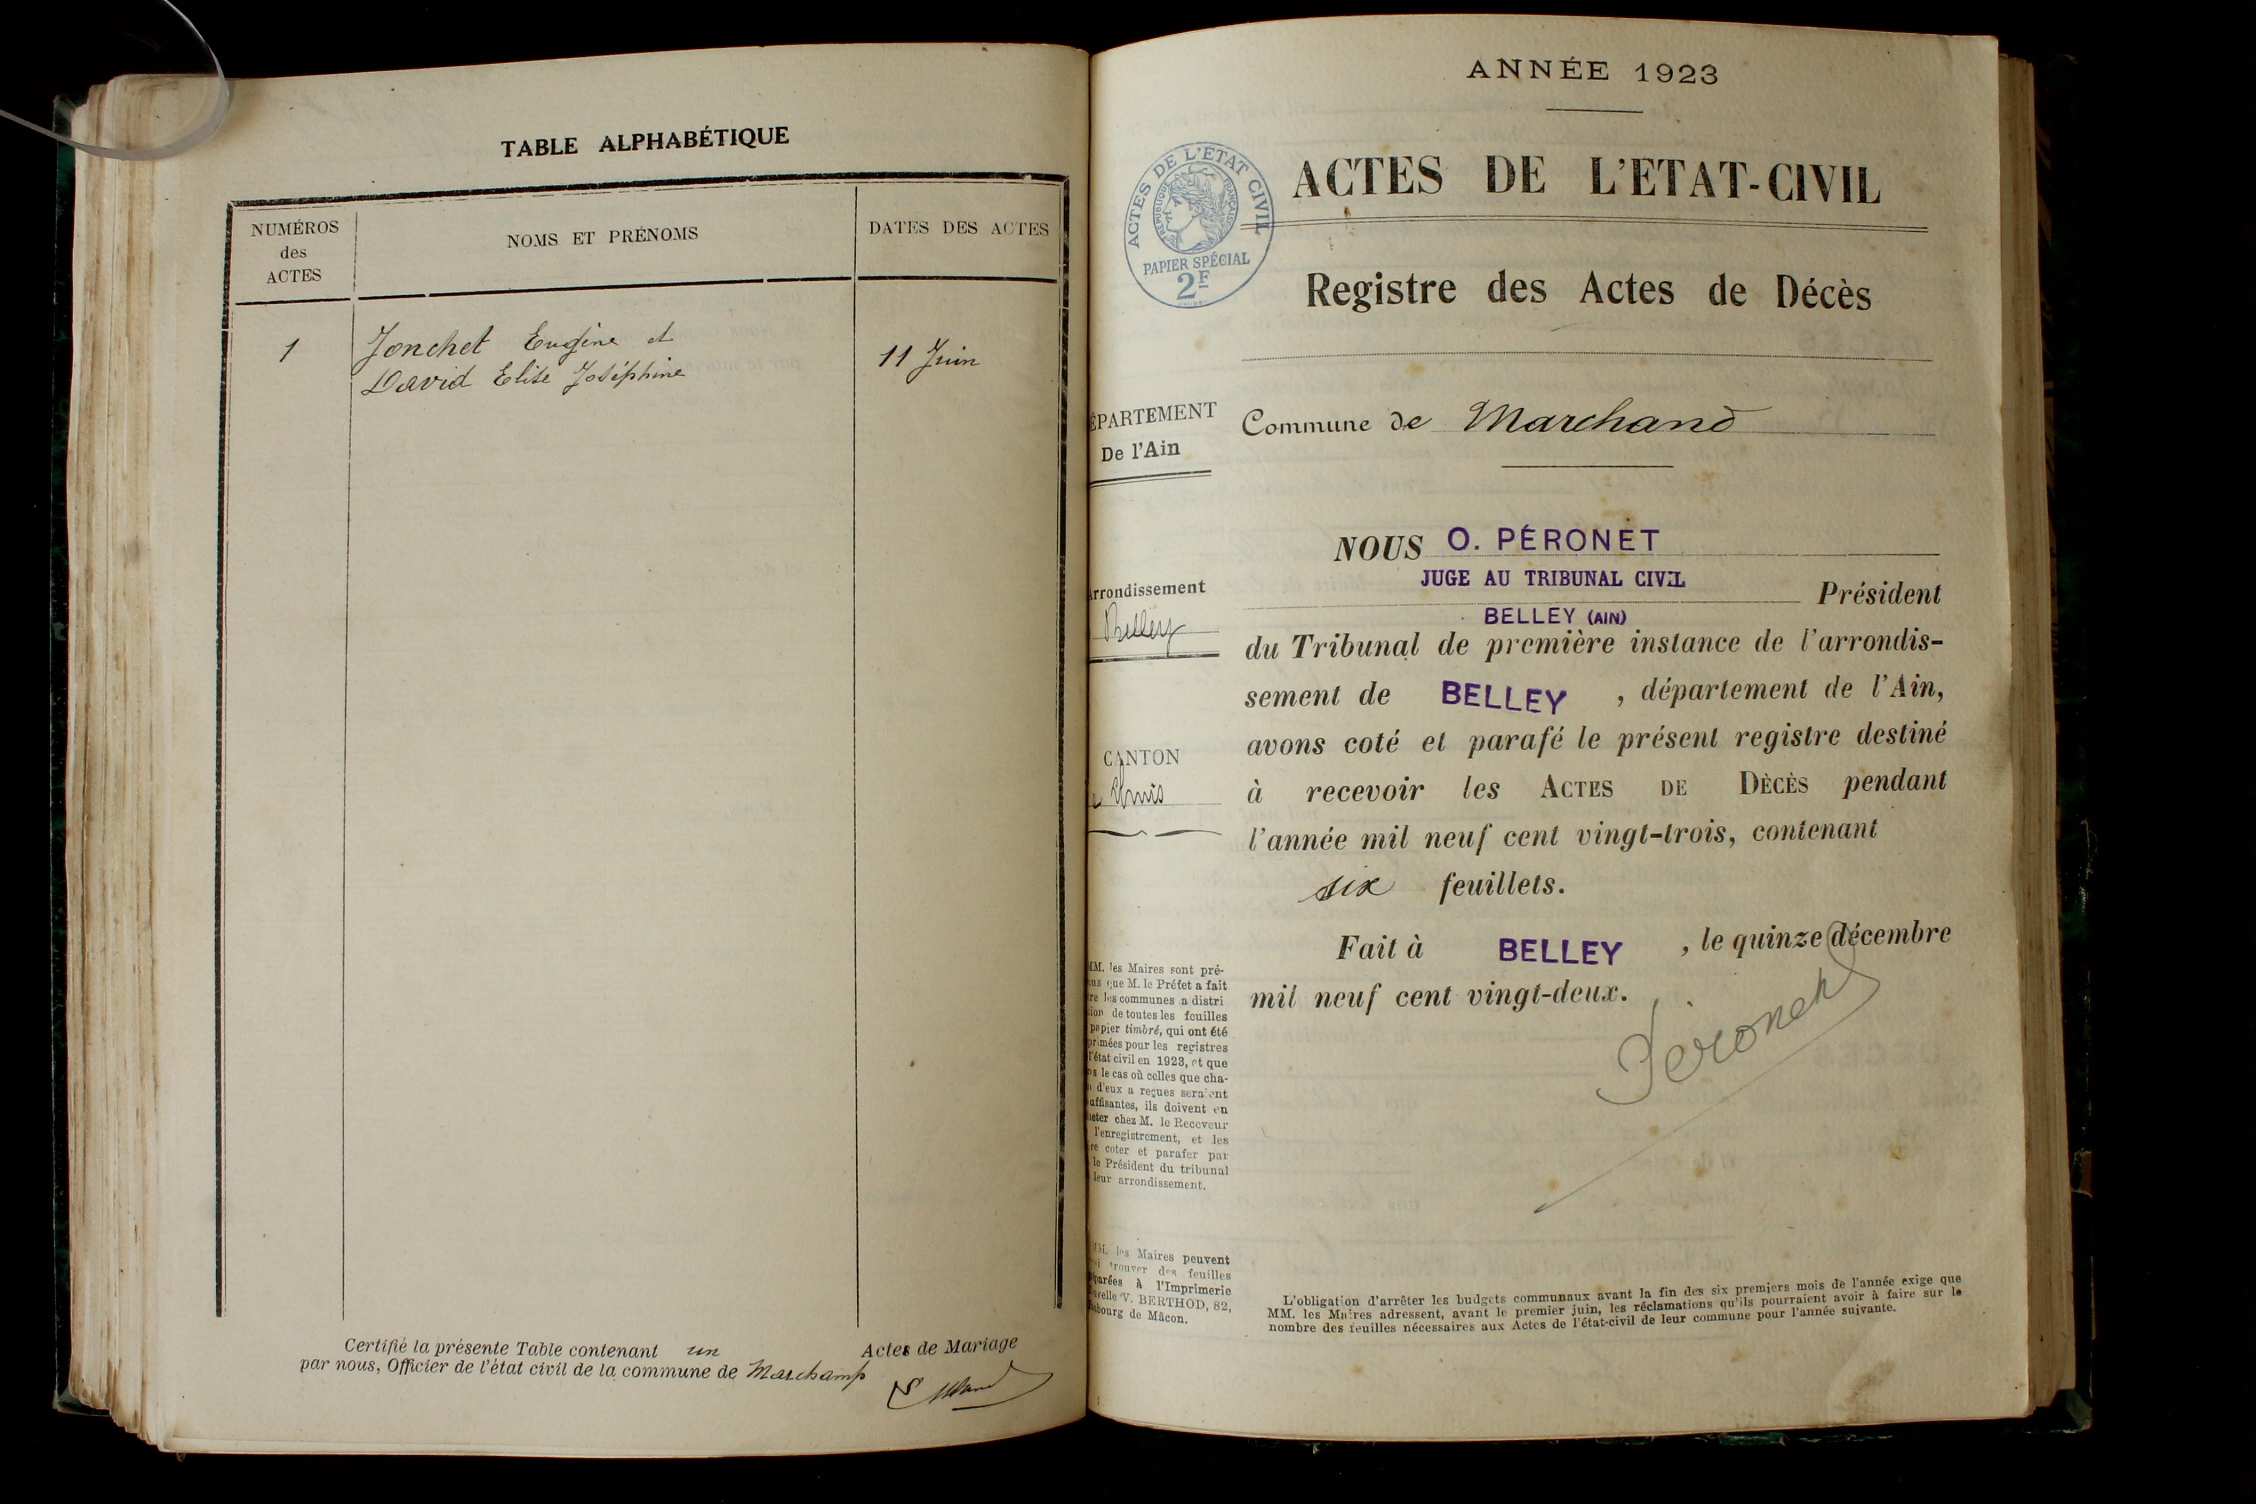 TABLE ALPHABÉTIQUE
NUMÉROS
des
ACTES
NOMS ET PRÉNOMS
DATES DES ACTES
1
Jonchet Eugène et
David Elise Joséphine
11 Juin
Certifié la présente Table contenant un Actes de Mariage
par nous, Officier de l'état civil de la commune de Marchamp
ANNÉE 1923
ACTES DE L'ETAT-CIVIL
ACTES DE L'ETAT CIVIL
REPUBLIQUE FRANÇAISE
PAPIER SPÉCIAL
2F
Registre des Actes de Décès
ÉPARTEMENT
De l'Ain
Commune de Marchand
Arrondissement
Belley
CANTON
NOUS O. PÉRONET
JUGE AU TRIBUNAL CIVIL
Président
BELLEY (AIN)
du Tribunal de première instance de l'arrondis-
sement de BELLEY, département de l'Ain,
avons coté et parafé le présent registre destiné
à recevoir les ACTES DE DÈCÈS pendant
l'année mil neuf cent vingt-trois, contenant
six feuillets.
Fait à BELLEY, le quinze décembre
mil neuf cent vingt-deux.
Péronet
MM. les Maires sont pré-
que M. le Préfet a fait
les communes a distri
de toutes les feuilles
papier timbré, qui ont été
primées pour les registres
l'état civil en 1923, et que
le cas où celles que cha-
d'eux a reçues seraient
uffisantes, ils doivent en
chez M. le Receveur
l'enregistrement, et les
coter et parafer par
le Président du tribunal
leur arrondissement.
les Maires peuvent
trouver des feuilles
parées à l'Imprimerie
V. BERTHOD, 82,
bourg de Mâcon.
L'obligation d'arrêter les budgets communaux avant la fin des six premiers mois de l'année exige que
MM. les Maires adressent, avant le premier juin, les réclamations qu'ils pourraient avoir à faire sur le
nombre des feuilles nécessaires aux Actes de l'état-civil de leur commune pour l'année suivante.